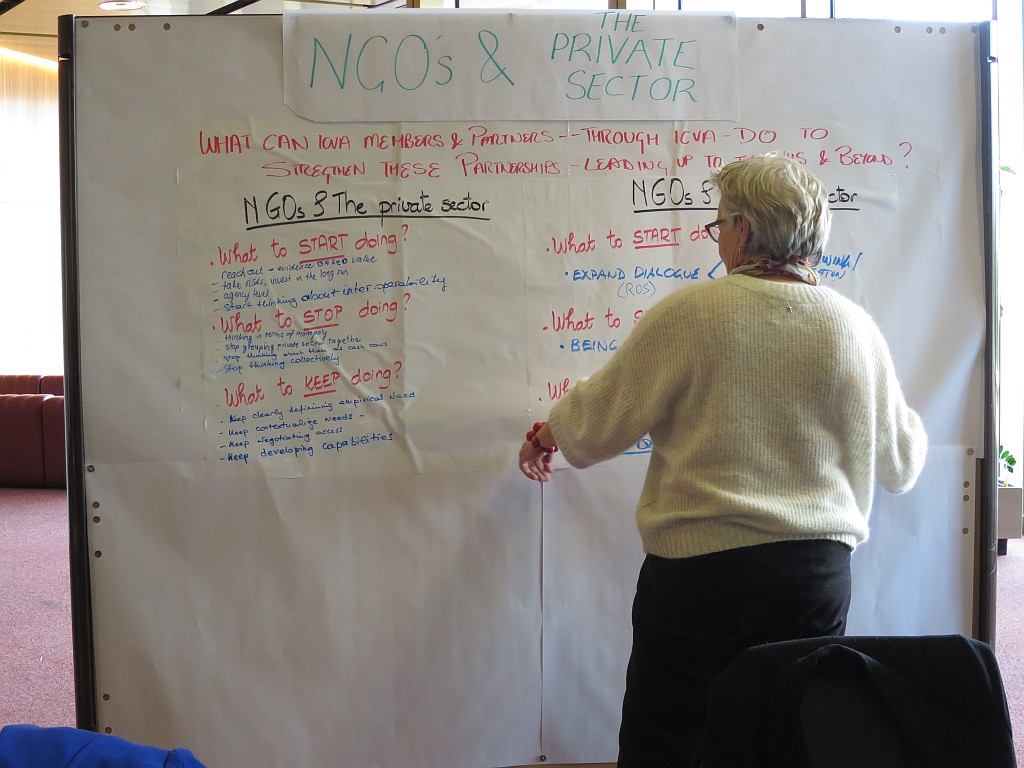 NGO's & THE PRIVATE SECTOR
WHAT CAN ICVA MEMBERS & PARTNERS - THROUGH ICVA - DO TO
STREGTHEN THESE PARTNERSHIPS - LEADING UP TO & BEYOND?
NGOs & The private sector
• What to START doing?
reach out → evidence BASED value
- take risks, invest in the long run
- agency level
- Start thinking about inter-operability
• What to STOP doing?
thinking in terms of monopoly
- stop grouping private sector together
- stop thinking about them as cash cows
- Stop thinking collectively
What to KEEP doing?
- Keep clearly defining empirical need
- Keep contextualize needs -
- Keep negotiating access
- Keep developing capabilities
NGOs sector
• What to START do
• EXPAND DIALOGUE
(ROS)
• What to
• BEING